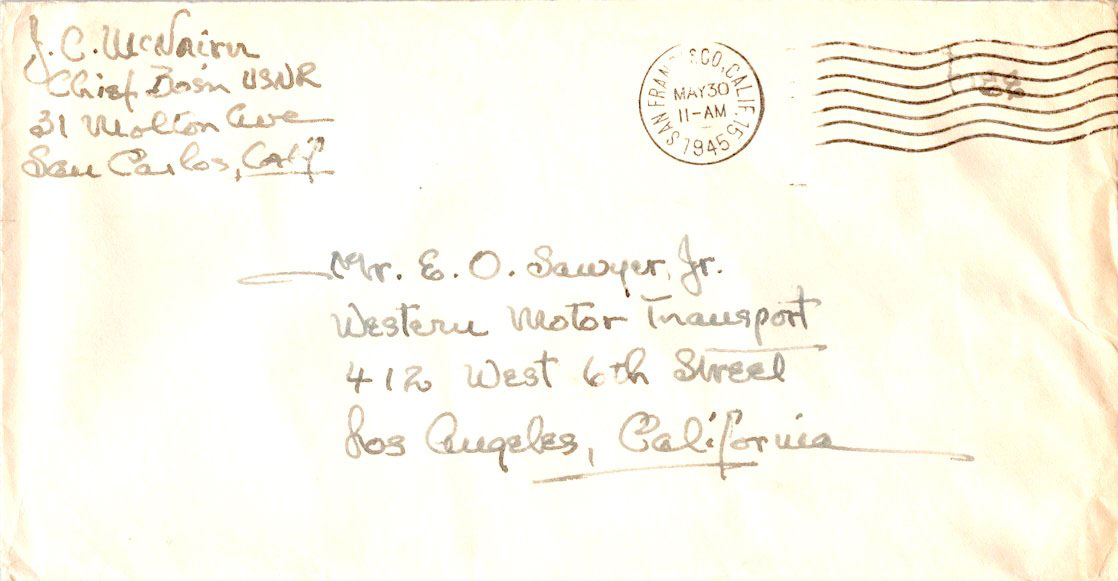 J. C. McNairn
Chief Bos'n USNR
31 Molton Ave
San Carlos, Calif
SAN FRANCISCO, CALIF. 15
MAY 30
11-AM
1945
Mr. E. O. Sawyer, Jr.
Western Motor Transport
412 West 6th Street
Los Angeles, California